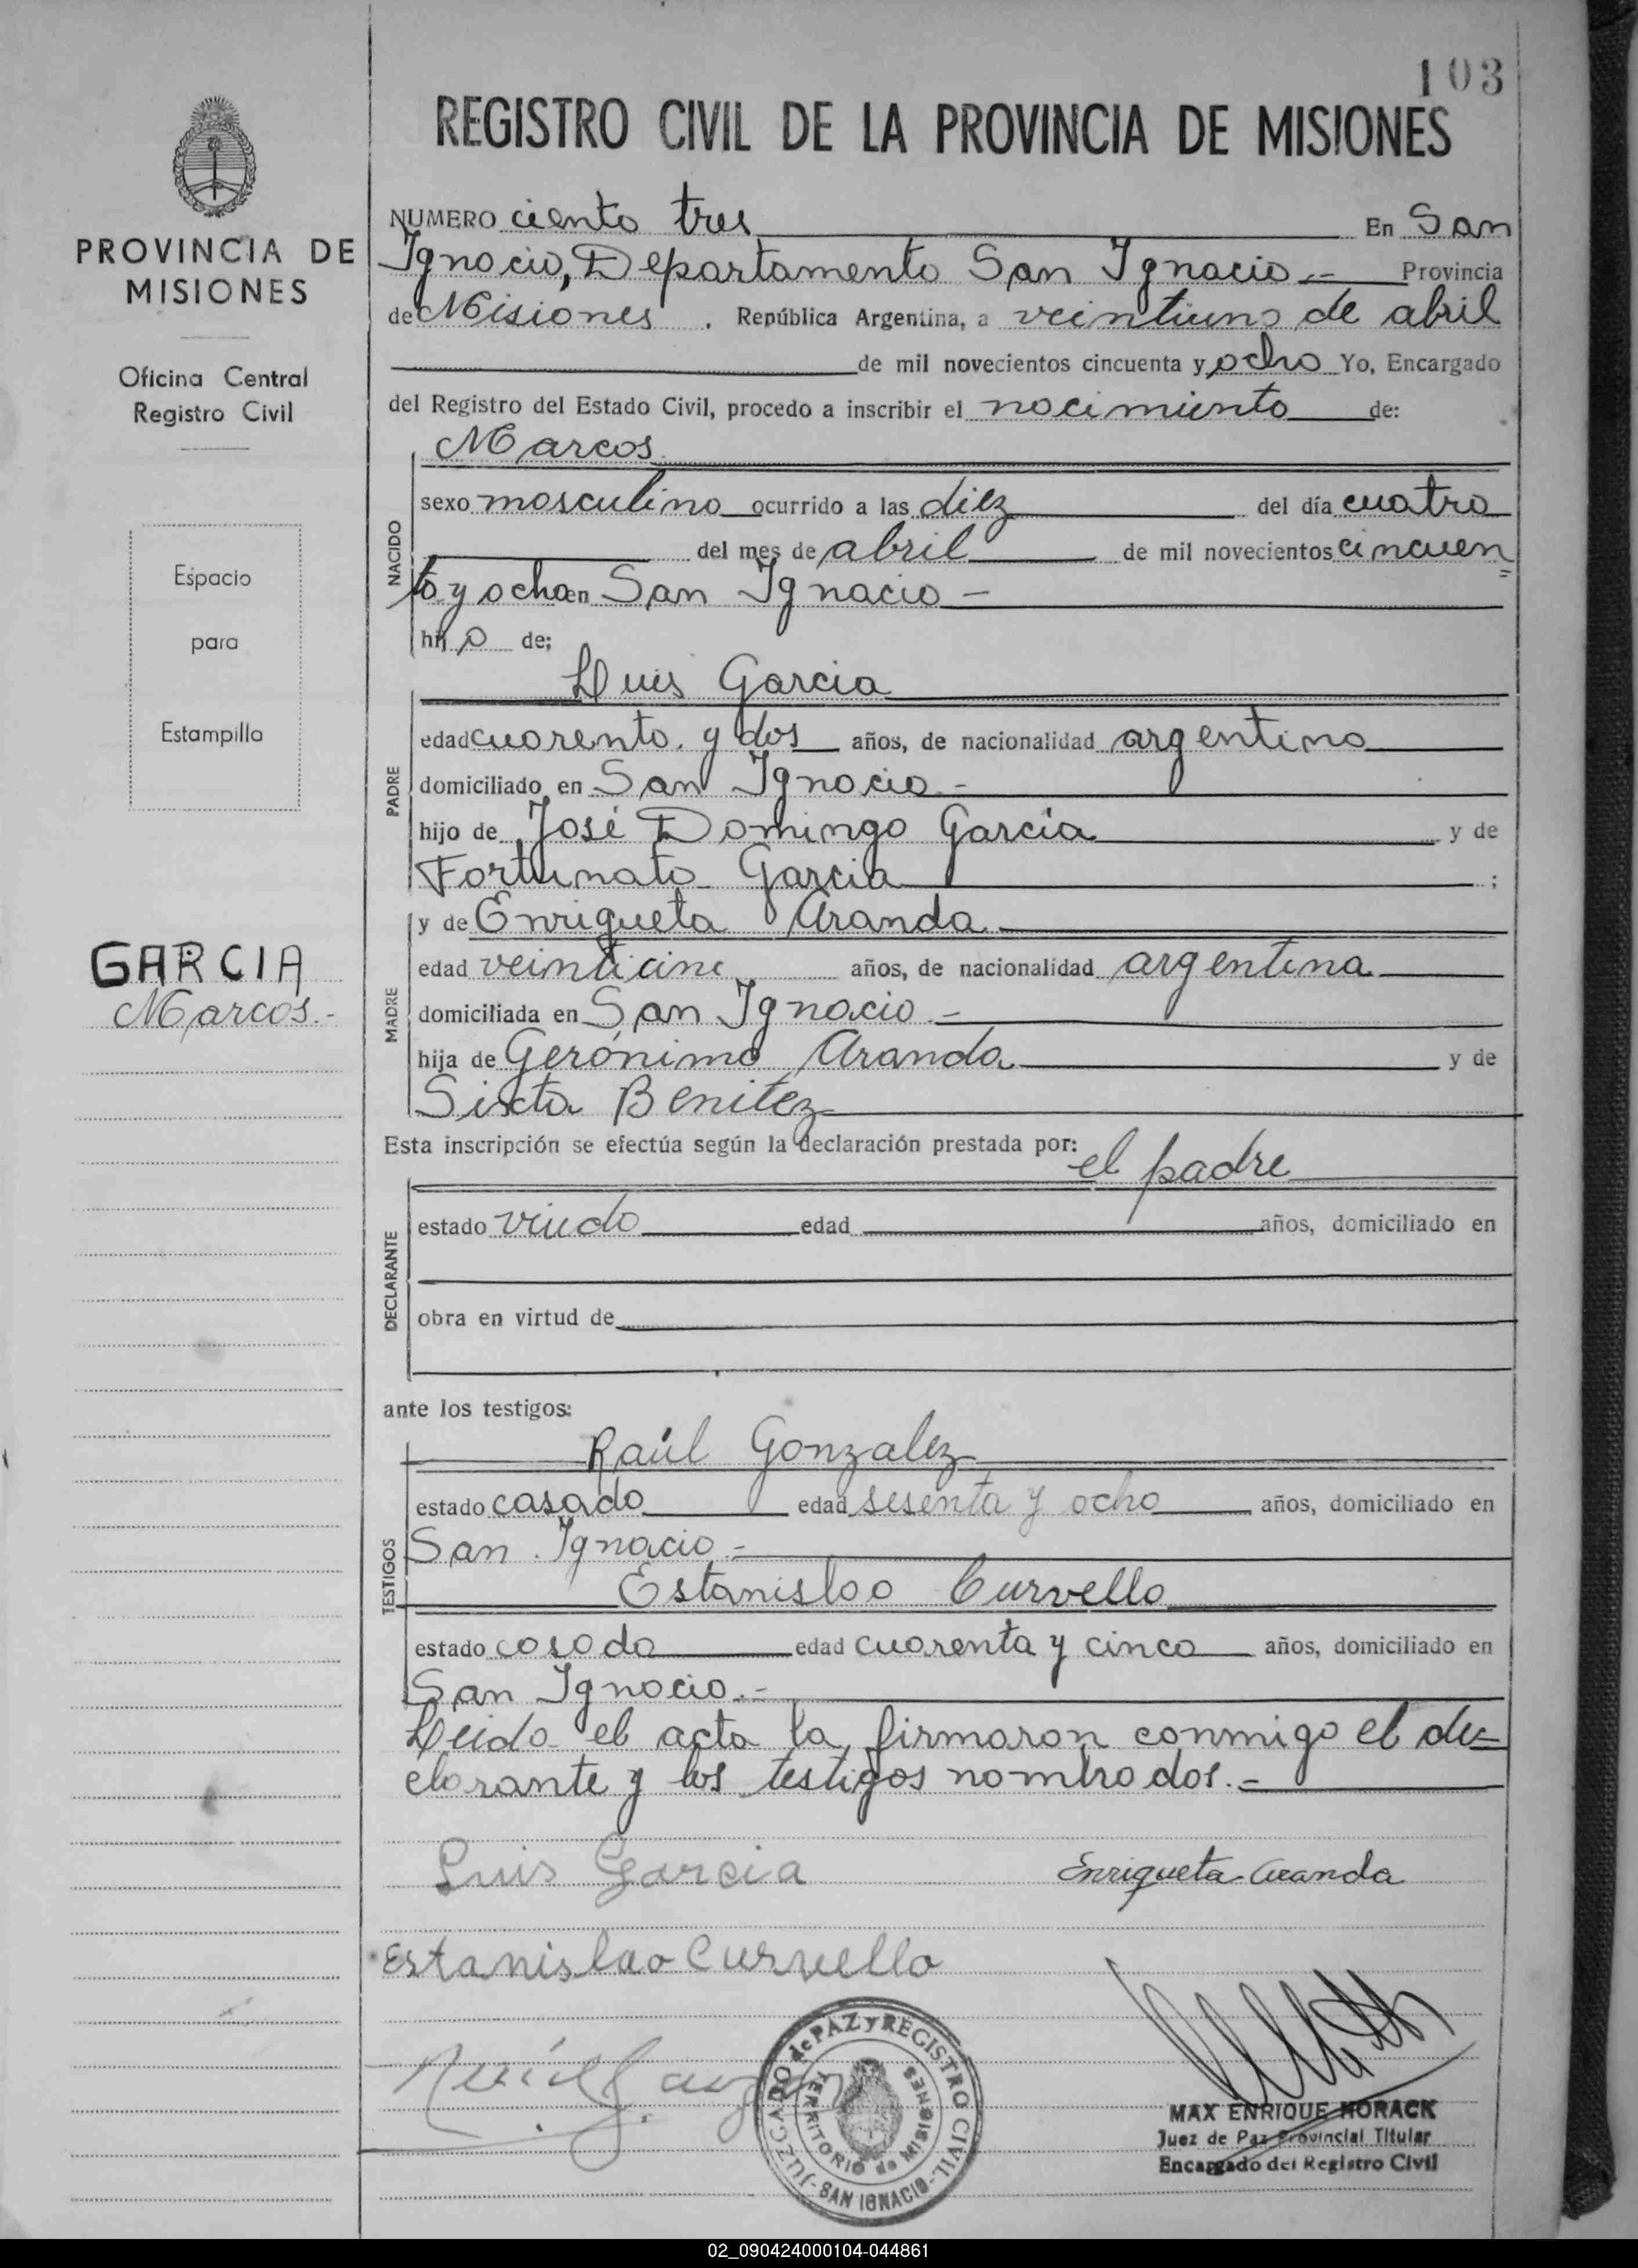 103
REGISTRO CIVIL DE LA PROVINCIA DE MISIONES
PROVINCIA DE
MISIONES
Oficina Central
Registro Civil
Espacio
para
Estampilla
GARCIA
Marcos.-
NUMERO ciento tres En San
Ignacio, Departamento San Ignacio.- Provincia
de Misiones. República Argentina, a veintiuno de abril
de mil novecientos cincuenta y ocho Yo, Encargado
del Registro del Estado Civil, procedo a inscribir el nacimiento de:
NACIDO
Marcos
sexo masculino ocurrido a las diez del día cuatro
del mes de abril de mil novecientos cincuen=
ta y ocho en San Ignacio -
hijo de;
PADRE
Luis Garcia
edad cuarenta y dos años, de nacionalidad argentino
domiciliado en San Ignacio.-
hijo de José Domingo García y de
Fortunata Garcia ;
MADRE
y de Enriqueta Aranda.
edad veinticinc años, de nacionalidad argentina
domiciliada en San Ignacio.-
hija de Gerónimo Aranda y de
Sixta Benitez
Esta inscripción se efectúa según la declaración prestada por: el padre
DECLARANTE
estado viudo edad años, domiciliado en
obra en virtud de
ante los testigos:
TESTIGOS
Raúl Gonzalez
estado casado edad sesenta y ocho años, domiciliado en
San Ignacio.-
Estanislao Curvello
estado casado edad cuarenta y cinco años, domiciliado en
San Ignacio.-
Leida el acta la firmaron conmigo el de=
clarante y los testigos nombrados.-
Luis Garcia Enriqueta Aranda
Estanislao Curvello
JUZGADO de PAZ y REGISTRO CIVIL - SAN IGNACIO -
TERRITORIO de MISIONES
MAX ENRIQUE HORACK
Juez de Paz Provincial Titular
Encargado del Registro Civil
02_090424000104-044861